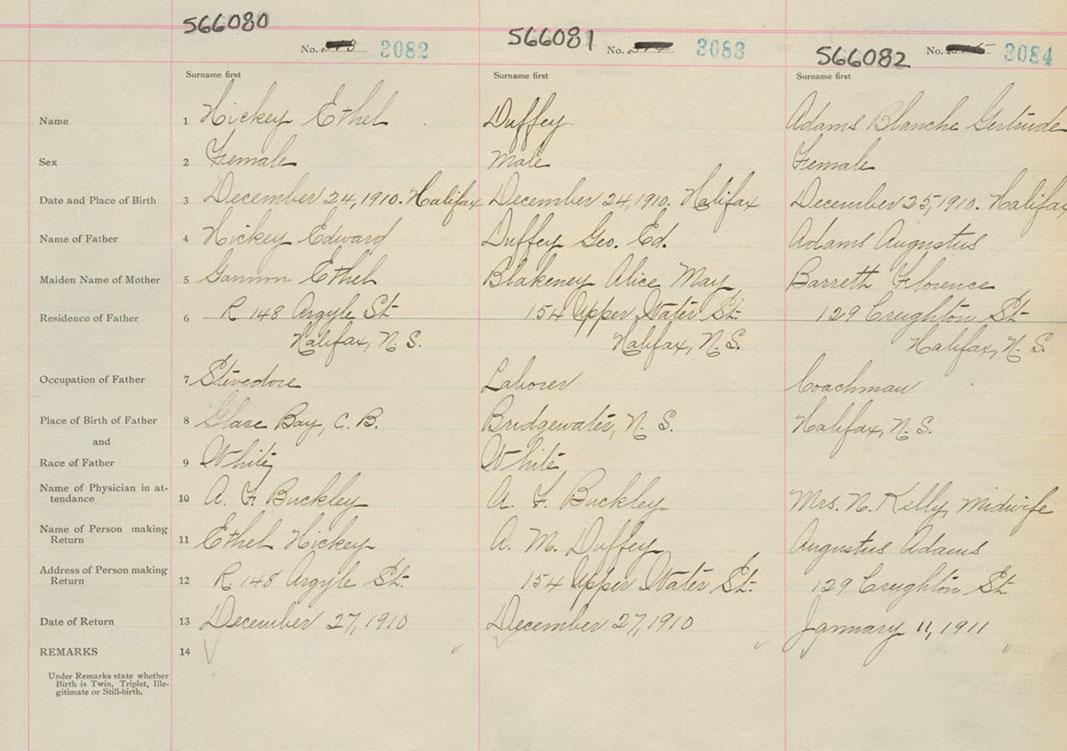 566080 566081 566082
No. 3082 No. 3083 No. 3084
Surname first Surname first Surname first
Name 1 Hickey Ethel Duffey Adams Blanche Gertrude
Sex 2 Female Male Female
Date and Place of Birth 3 December 24, 1910. Halifax December 24, 1910. Halifax December 25, 1910. Halifax
Name of Father 4 Hickey Edward Duffey Geo. Ed. Adams Augustus
Maiden Name of Mother 5 Gammon Ethel Blakeney Alice May Barrett Florence
Residence of Father 6 R 148 Argyle St 154 Upper Water St. 129 Creighton St
Halifax, N.S. Halifax, N.S. Halifax, N.S.
Occupation of Father 7 Stevedore Laborer Coachman
Place of Birth of Father 8 Glace Bay, C.B. Bridgewater, N.S. Halifax, N.S.
and
Race of Father 9 White White
Name of Physician in at-
tendance 10 A. F. Buckley A. F. Buckley Mrs. N. Kelly, Midwife
Name of Person making
Return 11 Ethel Hickey A. M. Duffey Augustus Adams
Address of Person making
Return 12 R 148 Argyle St. 154 Upper Water St. 129 Creighton St
Date of Return 13 December 27, 1910 December 27, 1910 January 11, 1911
REMARKS 14
Under Remarks state whether
Birth is Twin, Triplet, Ille-
gitimate or Still-birth.